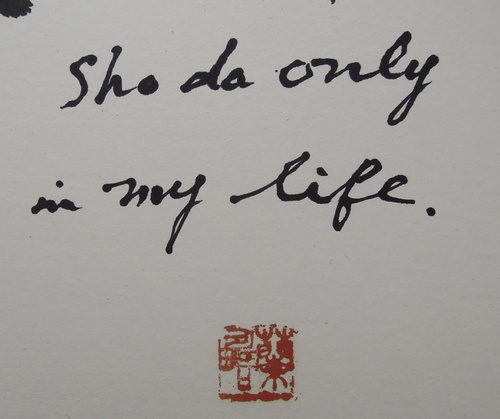 Shoda only
in my life.